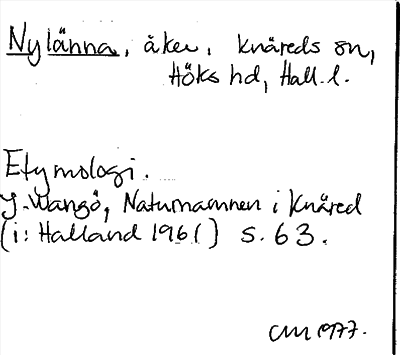 Nylänna, åker, Knäreds sn,
Höks hd, Hall. l.
Etymologi.
J. Wangö, Naturnamnen i Knäred
(i: Halland 1961) s. 63.
CM 1977.